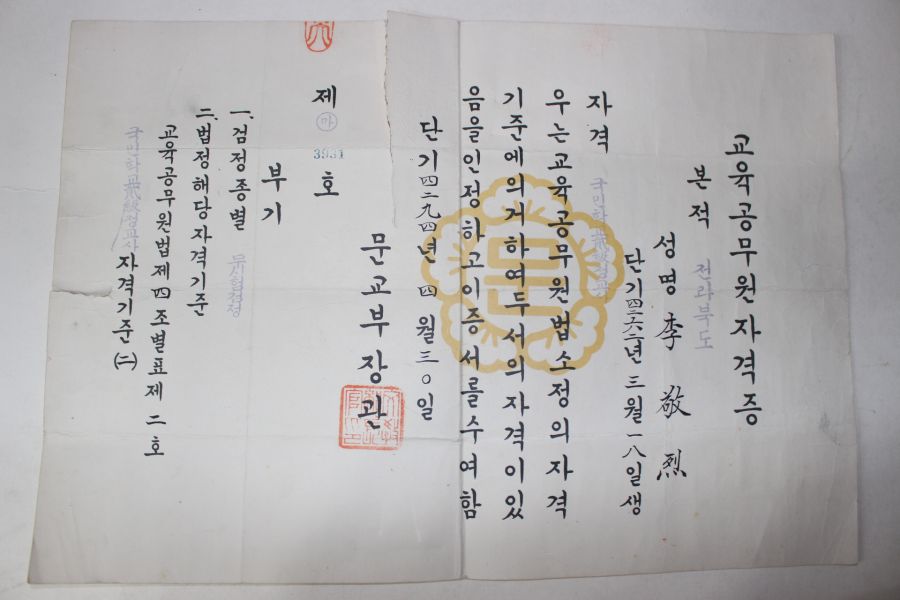 교육공무원자격증
본적 전라북도
성명 李敬烈
단기四二六六年 三월 一八일생
자격 국민학교貳級정교사
우는교육공무원법소정의자격
기준에의거하여두서의자격이있
음을인정하고이증서를수여함
단기四二九四년 四월三○일
문교부장관
제 마 3931 호
부기
一. 검정종별
二. 법정해당자격기준
교육공무원법제四조별표제二호
국민학교貳級정교사 자격기준(二)